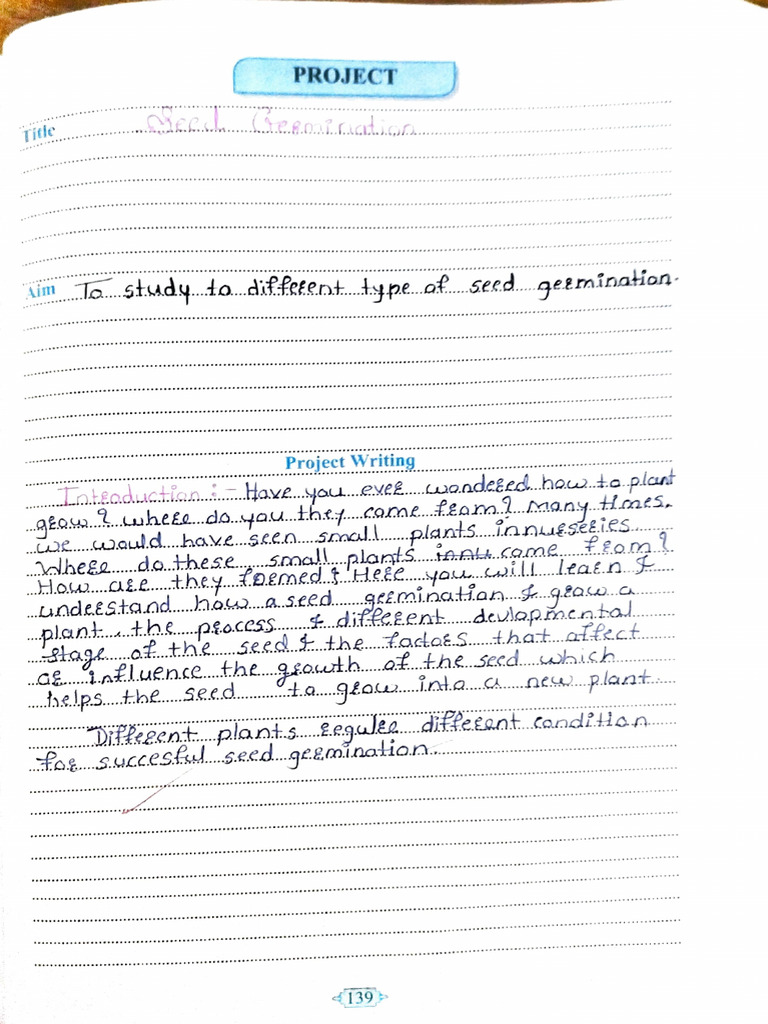 PROJECT
Title Seed Germination
Aim To study to different type of seed germination.
Project Writing
Introduction :- Have you ever wondered how to plant
grow? where do you they come from? Many times.
we would have seen small plants innurseries.
Where do these small plants innu come from?
How are they formed & Here you will learn &
understand how a seed germination & grow a
plant. the process & different devlopmental
stage of the seed & the factors that affect
or influence the growth of the seed which
helps the seed to grow into a new plant.
Different plants regulre different condition
for succesful seed germination.
139